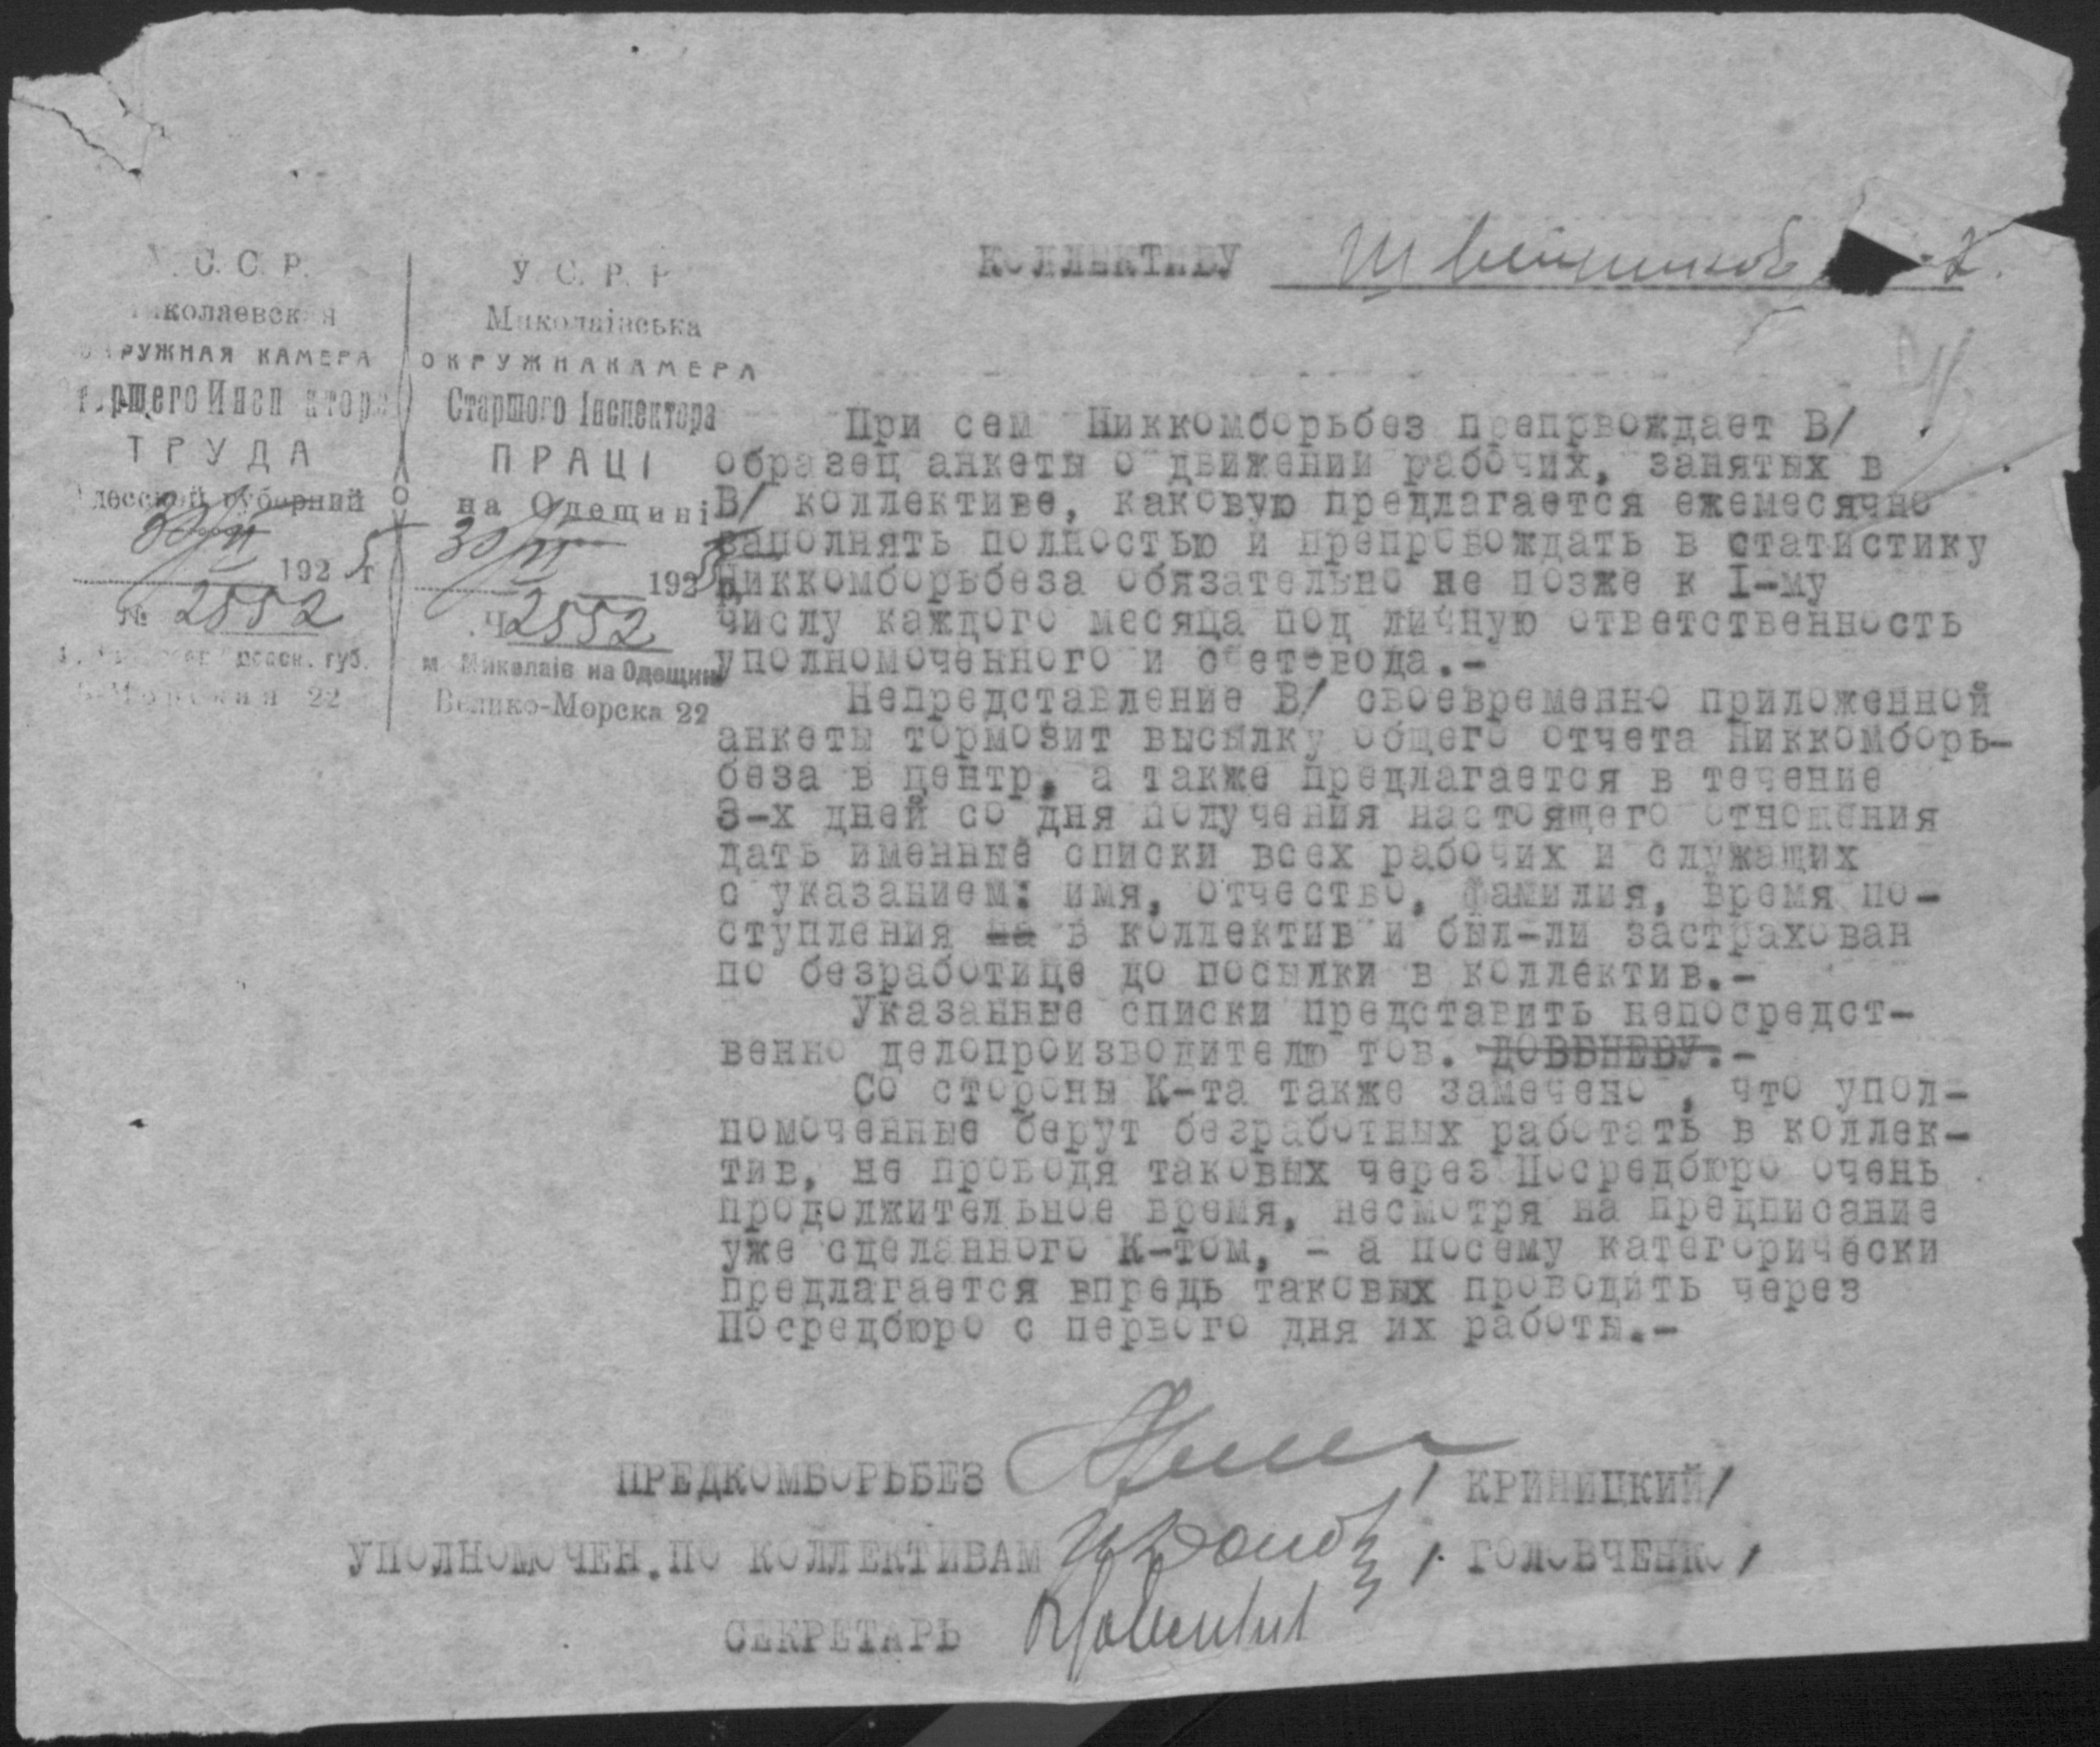 У.С.С.Р.
Николаевская
ОКРУЖНАЯ КАМЕРА
Старшего Инспектора
ТРУДА
Одесской губерний
30/VI 1925 г
№ 2552
губ.
22
У.С.Р.Р
Миколаівська
ОКРУЖНАКАМЕРА
Старшого Інспектора
ПРАЦІ
на Одещині
30/VI 1925
Ч 2552
м Миколаів на Одещині
Велико-Морска 22
КОЛЛЕКТИВУ Швейников
При сем Никкомборьбез препрвождает В/
образец анкеты о движении рабочих, занятых в
В/ коллективе, каковую предлагается ежемесячно
заполнять полностью и препровождать в статистику
Никкомборьбеза обязательно не позже к I-му
числу каждого месяца под личную ответственность
уполномоченного и счетовода.-
Непредставление В/ своевременно приложенной
анкеты тормозит высылку общего отчета Никкомборь-
беза в центр, а также предлагается в течение
3-х дней со дня получения настоящего отношения
дать именные списки всех рабочих и служащих
с указанием: имя, отчество, фамилия, время по-
ступления на в коллектив и был-ли застрахован
по безработице до посылки в коллектив.-
Указанные списки представить непосредст-
венно делопроизводителю тов. ДОВБНЕВУ.-
Со стороны К-та также замечено , что упол-
номоченные берут безработных работать в коллек-
тив, не проводя таковых через Посредбюро очень
продолжительное время, несмотря на предписание
уже сделанного К-том, - а посему категорически
предлагается впредь таковых проводить через
Посредбюро с первого дня их работы.-
ПРЕДКОМБОРЬБЕЗ / КРИНИЦКИЙ/
УПОЛНОМОЧЕН.ПО КОЛЛЕКТИВАМ /. ГОЛОВЧЕНКО/
СЕКРЕТАРЬ